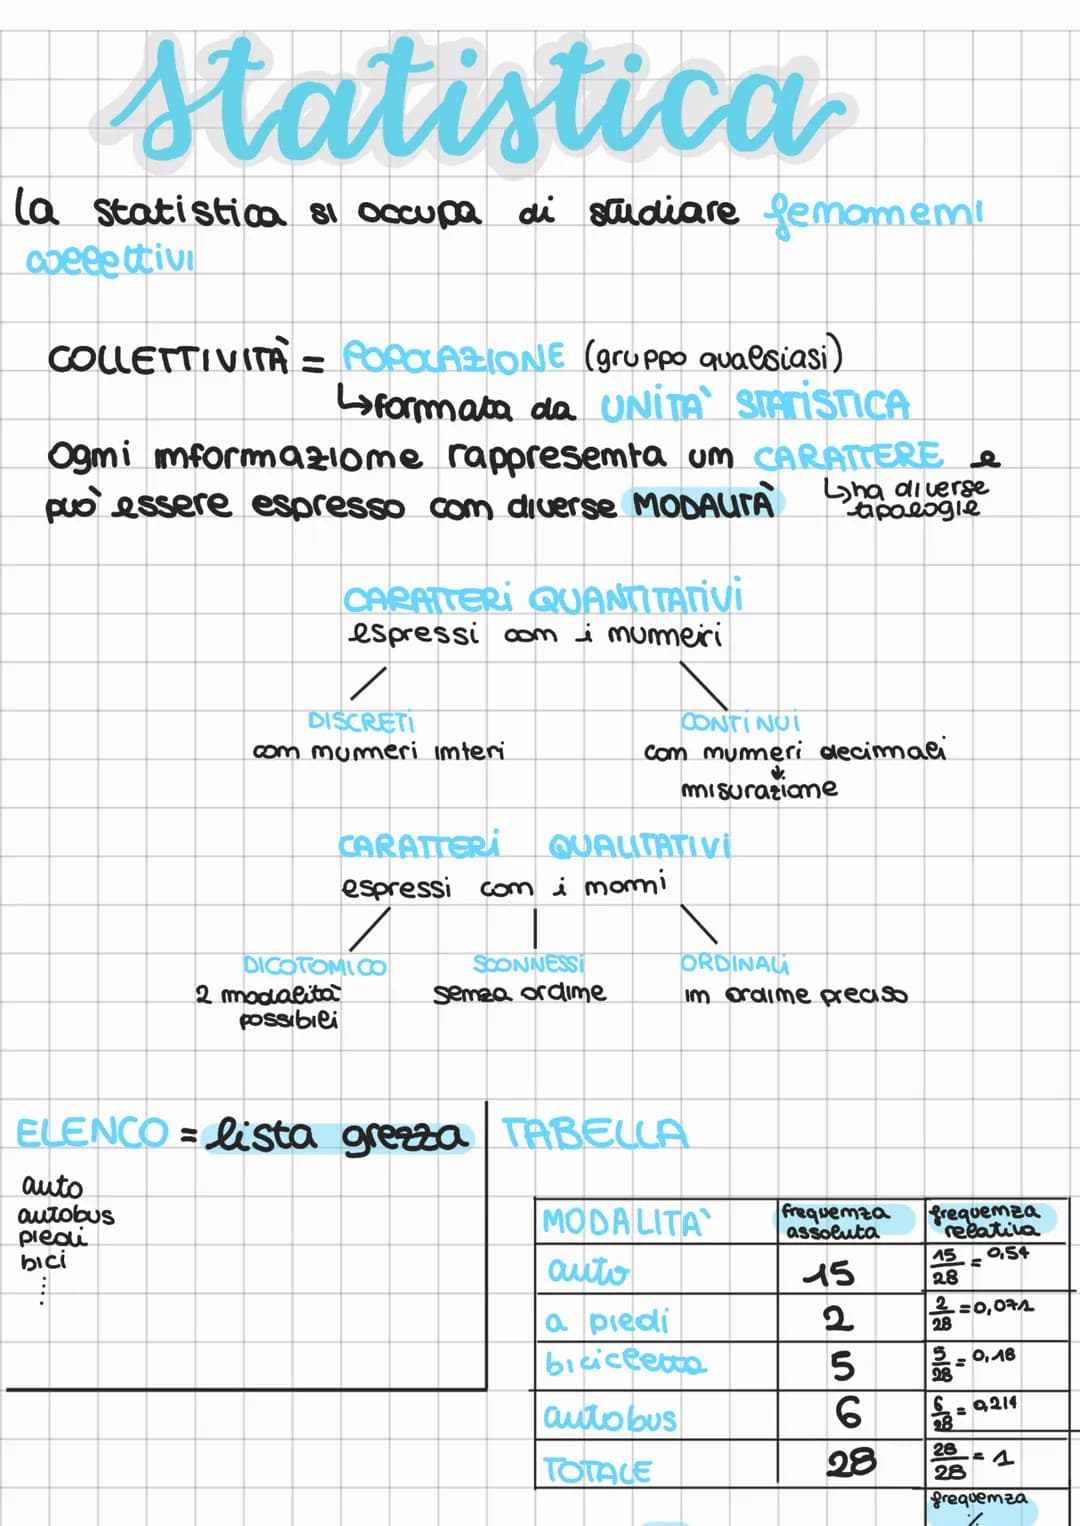 statistica
la statistica si occupa di studiare fenomeni
collettivi
COLLETTIVITÀ = POPOLAZIONE (gruppo qualsiasi)
↳formata da UNITA' STATISTICA
Ogni informazione rappresenta un CARATTERE e
↳ha diverse
può essere espresso con diverse MODALITÀ
tipologie
CARATTERI QUANTITATIVI
espressi con i numeri
DISCRETI
CONTINUI
con numeri interi
con numeri decimali
↓
misurazione
CARATTERI QUALITATIVI
espressi con i nomi
DICOTOMICO
SCONNESSI
ORDINALI
2 modalità
possibili
senza ordine
in ordine preciso
ELENCO = lista grezza
auto
autobus
piedi
bici
⋮
TABELLA
MODALITA' frequenza assoluta frequenza relativa
auto 15 15/28 = 0,54
a piedi 2 2/28 = 0,071
bicicletta 5 5/28 = 0,18
autobus 6 6/28 = 0,214
TOTALE 28 28/28 = 1
frequenza